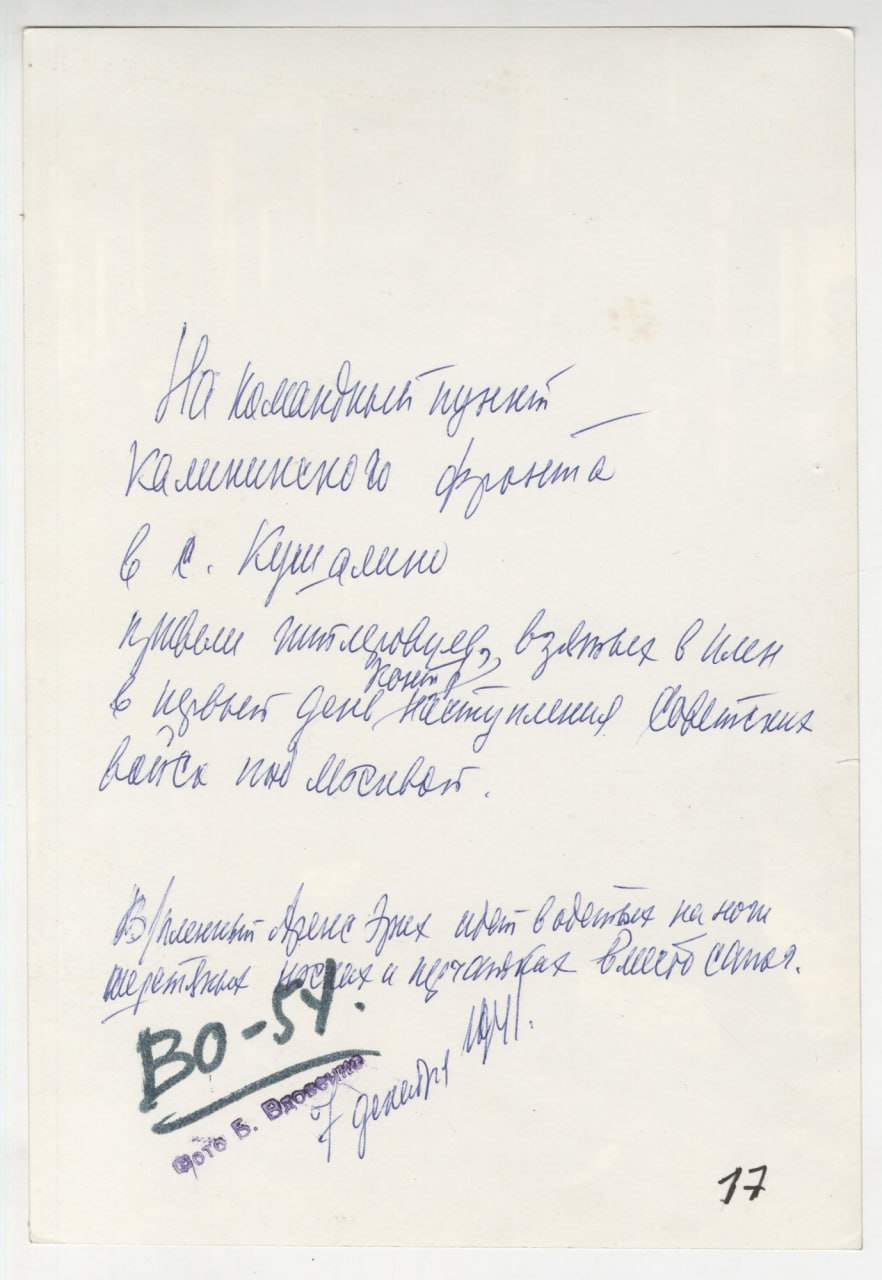 На командный пункт
Калининского фронта
в с. Кушалино
привели гитлеровцев, взятых в плен
контр
в первый день наступления Советских
войск под Москвой.
В/пленный Аренс Эрих идёт в одетых на ноги
шерстяных носках и перчатках вместо сапог.
ВО-54.
Фото Б. Вдовенко
7 декабря 1941.
17